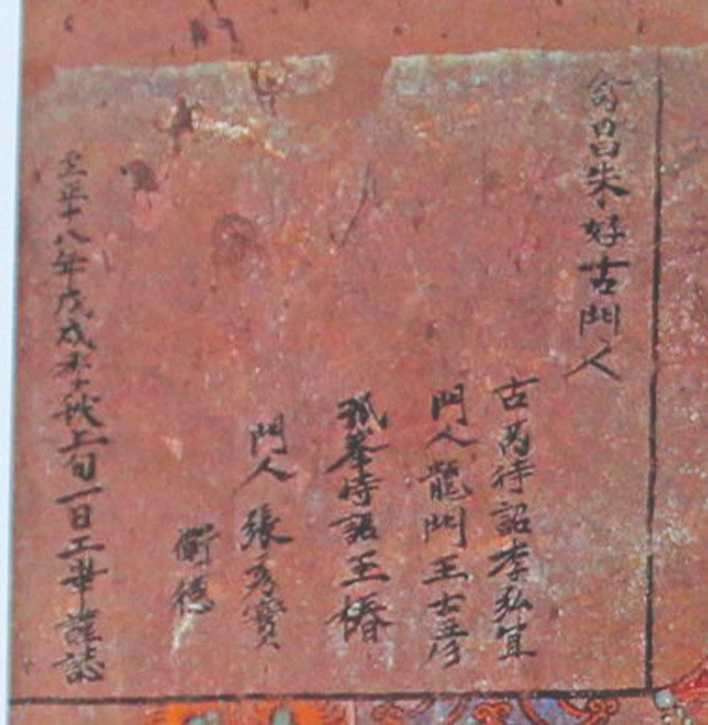 禽昌朱好古門人
古芮待詔李弘宜
門人龍門王士彥
孤峯待詔王椿
門人張秀寶
衛德
至正十八年戊戌季秋上旬一日工畢謹誌